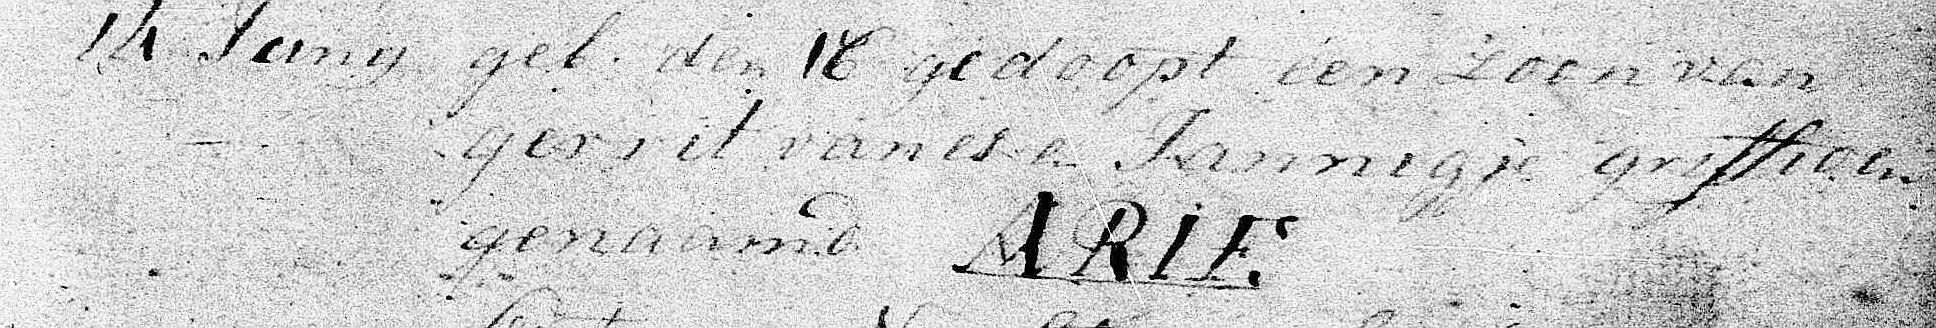 12 Jany geb. den 16 gedoopt een zoon van
gerrit van es en Jannigje griffioen
genaamd ARIE